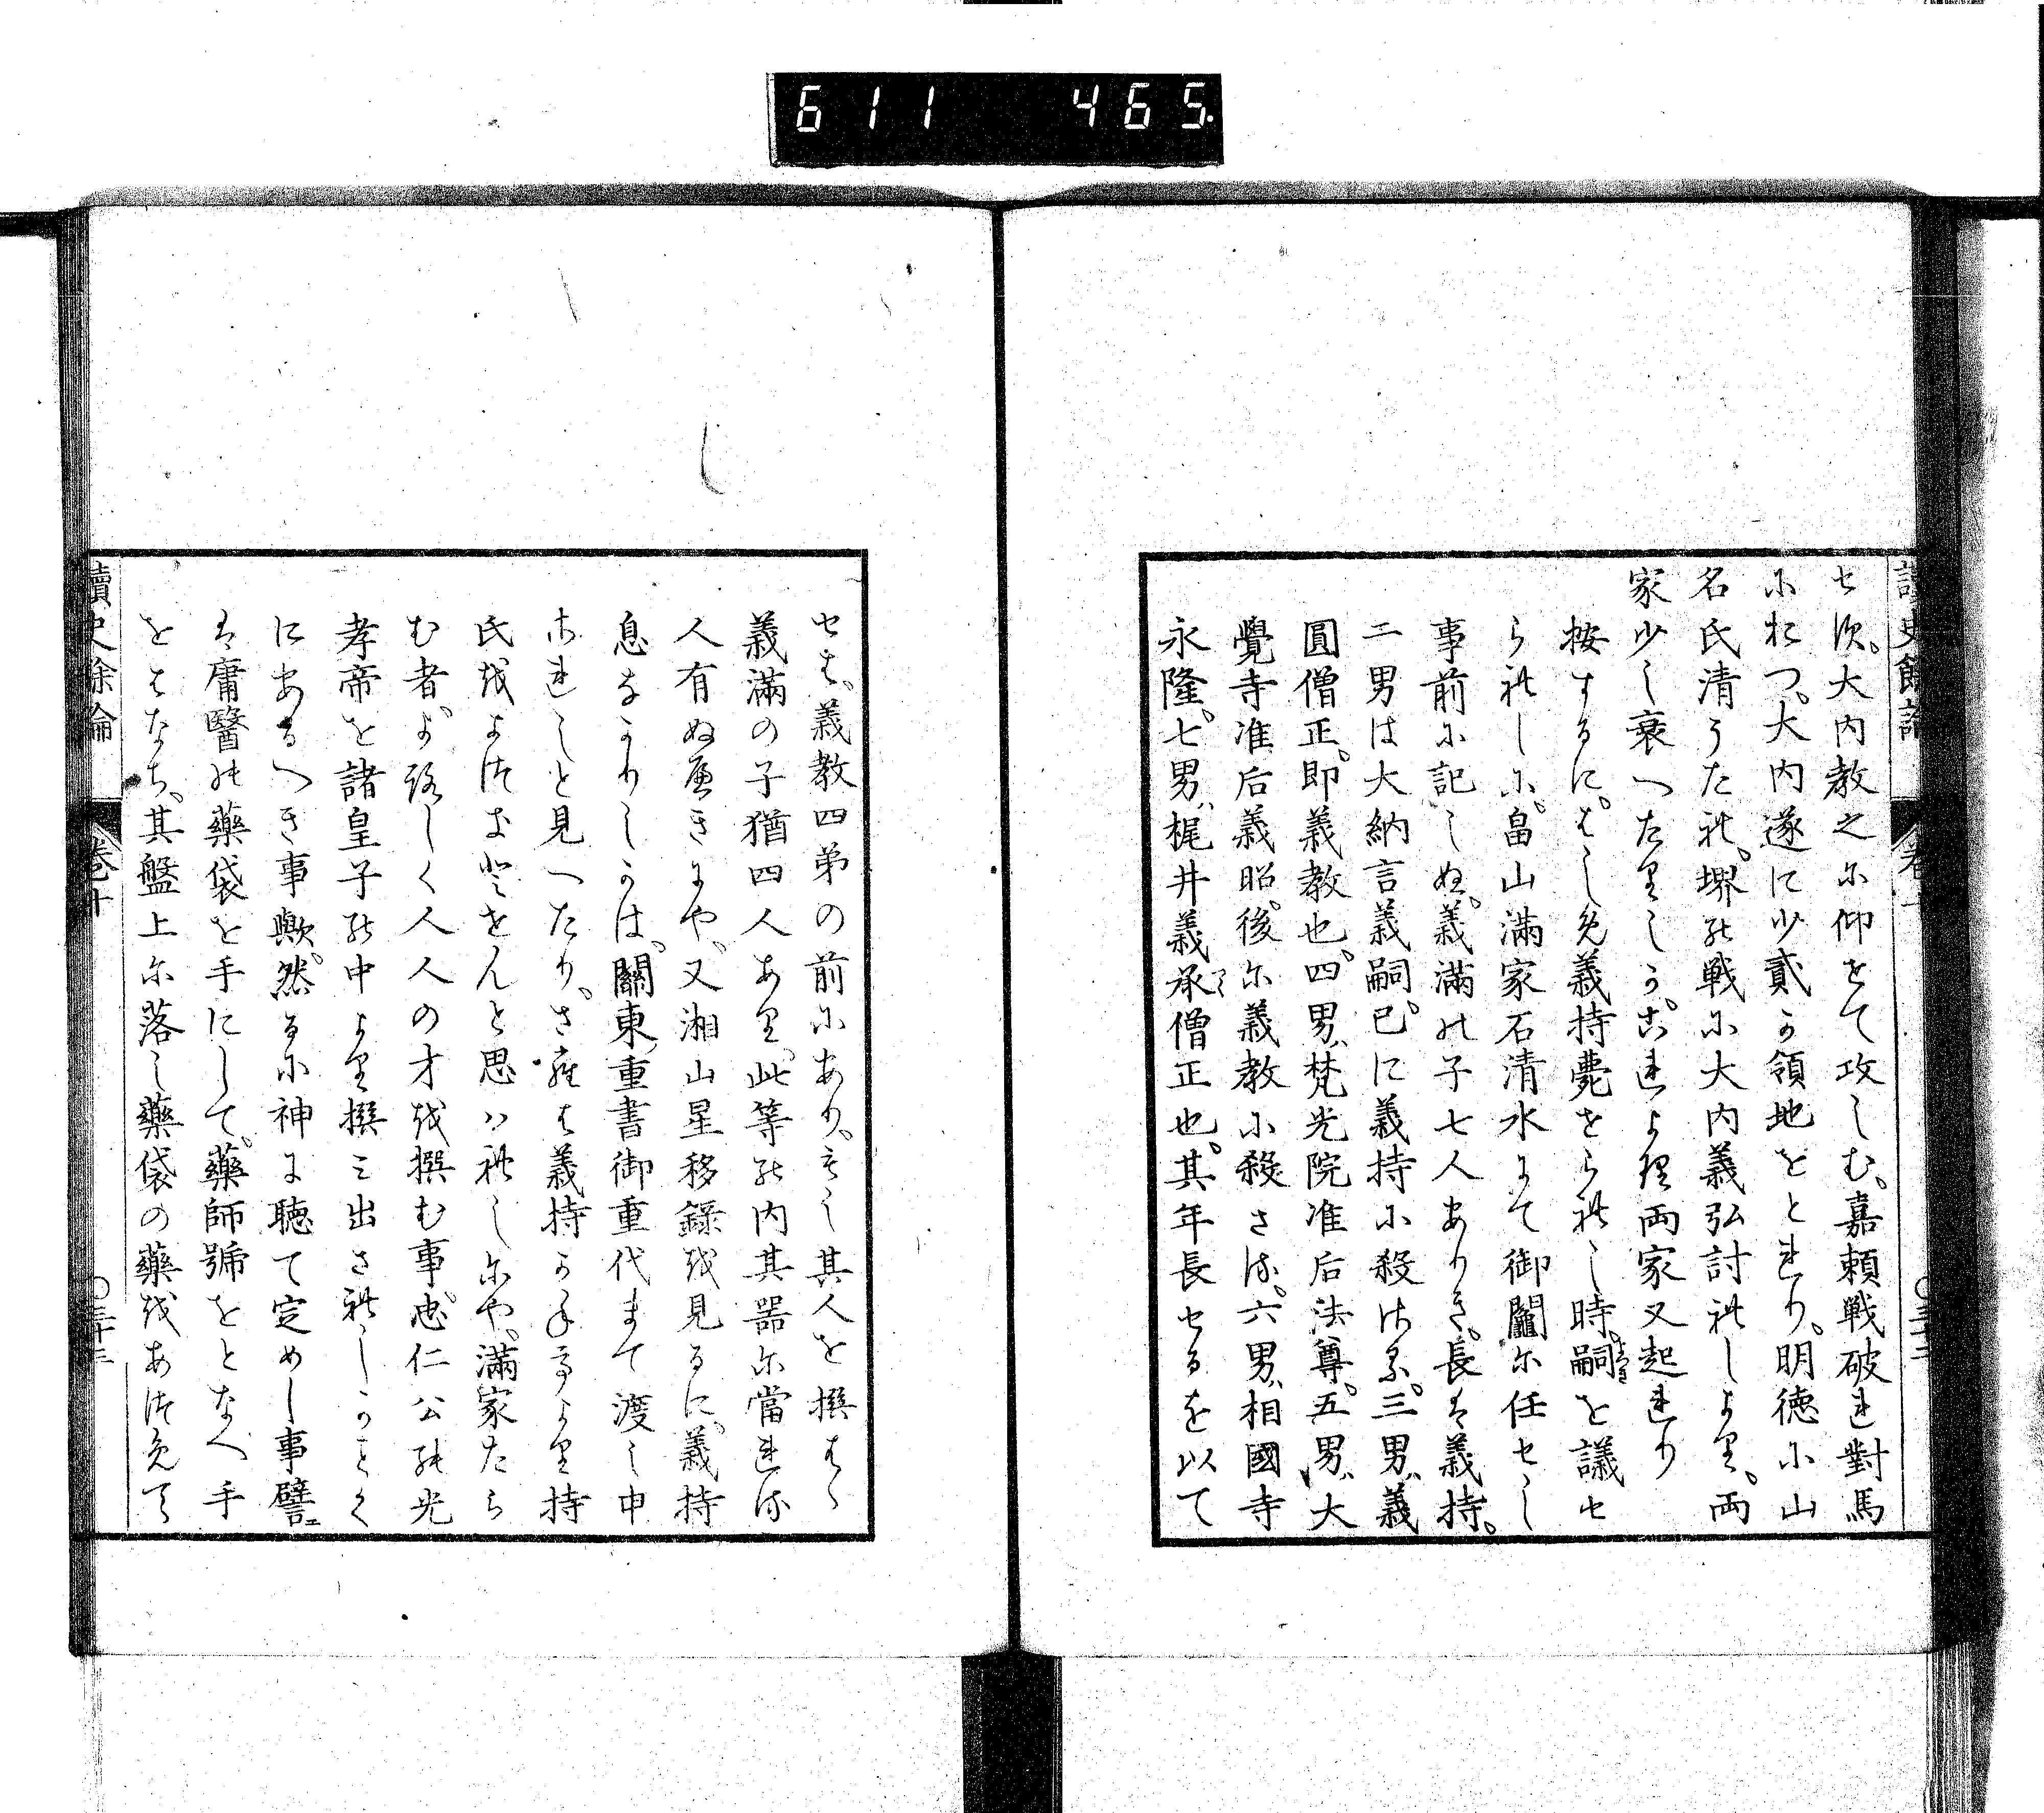 611 465.
讀史餘論
せず。大内教之に仰をて攻しむ。嘉頼戦破れ對馬
におつ。大内遂に少貳か領地をとれり。明徳に山
名氏清うたれ。堺の戦に大内義弘討れしより。両
家少し衰へたりしか。これより両家又起れり
按するに。はしめ義持薨せられし時。嗣を議せ
られしに。畠山満家石清水にて御鬮に任せし
事前に記しぬ。義滿の子七人ありき。長は義持。
二男は大納言義嗣。已に義持に殺さる。三男、義
圓僧正。即義教也。四男、梵光院准后法尊。五男、大
覺寺准后義昭。後に義教に殺さる。六男、相國寺
永隆。七男、梶井義承僧正也。其年長せるを以て
せは、義教四弟の前にあり、もし其人を撰はゝ
義滿の子猶四人あり。此等の内其器に當れる
人有ぬへきにや、又湘山星移録を見るに、義持
息なかりしかは、關東、重書御重代まて渡し申
されしと見へたり。され は義持かねてより持
氏をよつきとせんと思はれしにや、滿家たら
む者、よろしく人人の才を撰む事、忠仁公の光
孝帝を諸皇子の中より撰ミ出されしかことく
にあるへき事歟。然るに神に聴て定めし事譬ヱ
は庸醫の藥袋を手にして。藥師號をとなへ手
をはなち、其盤上に落し藥袋の藥をあつめて
讀史餘論 卷十 〇三十三